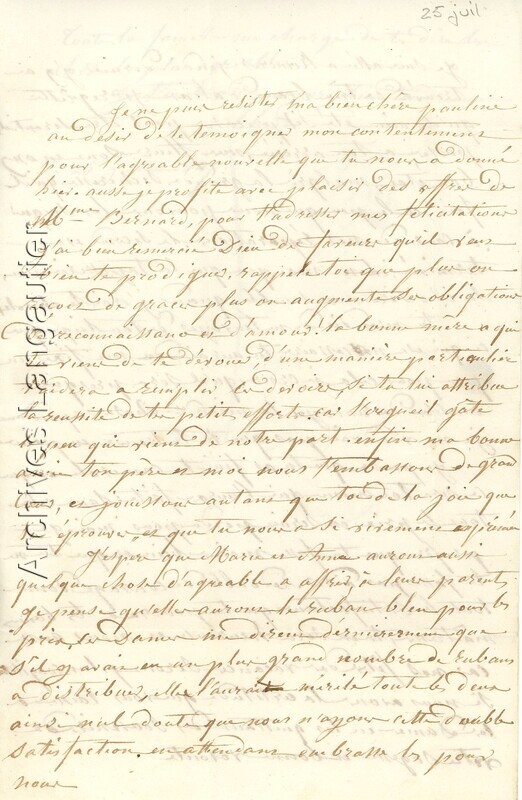 25 juil.
Je ne puis resister ma bien chère pauline
au desir de te temoigner mon contentement
pour l'agreable nouvelle que tu nous a donné
hier. aussi je profite avec plaisir des offres de
Mme Bernard, pour t'adresser mes félicitations
j'ai bien remercié Dieu des faveurs qu'il veut
bien te prodiguer, rappele toi que plus on
reçois de graces plus on augmente ses obligations
de reconnaissance et d'amour! la bonne mère a qui
tu viens de te dévouer, d'une manière particulière
t'aidera a remplir ce devoir, si tu lui attribue
la reussite de tes petits efforts. car l'orgueil gâte
le peu qui vient de notre part. enfin ma bonne
amie ton père et moi nous t'embrassons de grand
cœur, et jouissons autant que toi de la joie que
tu éprouve et que tu nous a si vivement exprimée
J'espere que Marie et Anna auront aussi
quelque chose d'agreable a offrir, à leurs parents
je pense qu'elles auront le ruban bleu pour les
prix, ces dames me dirent dernierement que
s'il y avait eu un plus grand nombre de rubans
a distribuer, elles l'auraient mérité toutes les deux
ainsi nul doute que nous n'ayons cette double
satisfaction. en attendant embrasse les pour
nous
Archives Langaulier